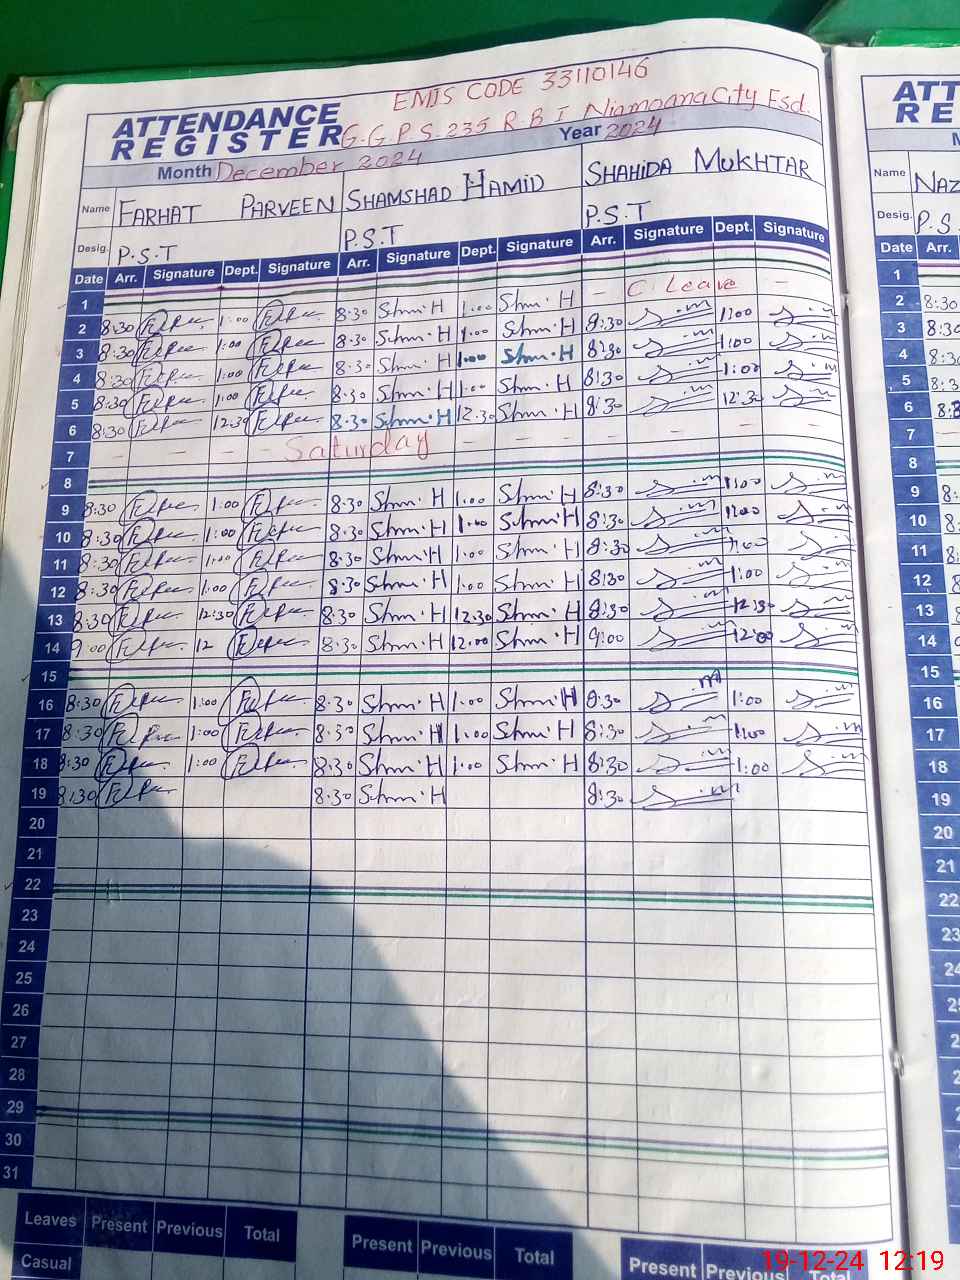 EMIS CODE 33110146
ATTENDANCE REGISTER G.G.P.S. 235 R.B I Niamoana City Fsd.
Month December 2024 Year 2024
Name FARHAT PARVEEN SHAMSHAD HAMID SHAHIDA MUKHTAR
Desig. P.S.T P.S.T P.S.T
Date Arr. Signature Dept. Signature Arr. Signature Dept. Signature Arr. Signature Dept. Signature
1
2 8:30 1:00 8:30 Shm.H 1:00 Shm.H - C. Leave -
3 8:30 1:00 8:30 Shm.H 1:00 Shm.H 8:30 1:00
4 8:30 1:00 8:30 Shm.H 1:00 Shm.H 8:30 1:00
5 8:30 1:00 8:30 Shm.H 1:00 Shm.H 8:30 1:00
6 8:30 12:30 8:30 Shm.H 12:30 Shm.H 8:30 12:30
7 - - - - Saturday - - - - - -
8
9 8:30 1:00 8:30 Shm.H 1:00 Shm.H 8:30 1:00
10 8:30 1:00 8:30 Shm.H 1:00 Shm.H 8:30 1:00
11 8:30 1:00 8:30 Shm.H 1:00 Shm.H 8:30 1:00
12 8:30 1:00 8:30 Shm.H 1:00 Shm.H 8:30 1:00
13 8:30 12:30 8:30 Shm.H 12:30 Shm.H 8:30 12:30
14 9:00 12 8:30 Shm.H 12:00 Shm.H 9:00 12:00
15
16 8:30 1:00 8:30 Shm.H 1:00 Shm.H 8:30 1:00
17 8:30 1:00 8:30 Shm.H 1:00 Shm.H 8:30 1:00
18 8:30 1:00 8:30 Shm.H 1:00 Shm.H 8:30 1:00
19 8:30 8:30 Shm.H 8:30
20
21
22
23
24
25
26
27
28
29
30
31
Leaves Present Previous Total Present Previous Total Present Previous Total
Casual
ATT
RE
Name NAZ
Desig. P.S.
Date Arr.
1
2 8:30
3 8:30
4 8:30
5 8:3
6 8:3
7 -
8
9 8:
10 8:
11 8:
12 8
13 8
14 9
15
16
17
18
19
20
21
22
23
24
19-12-24 12:19